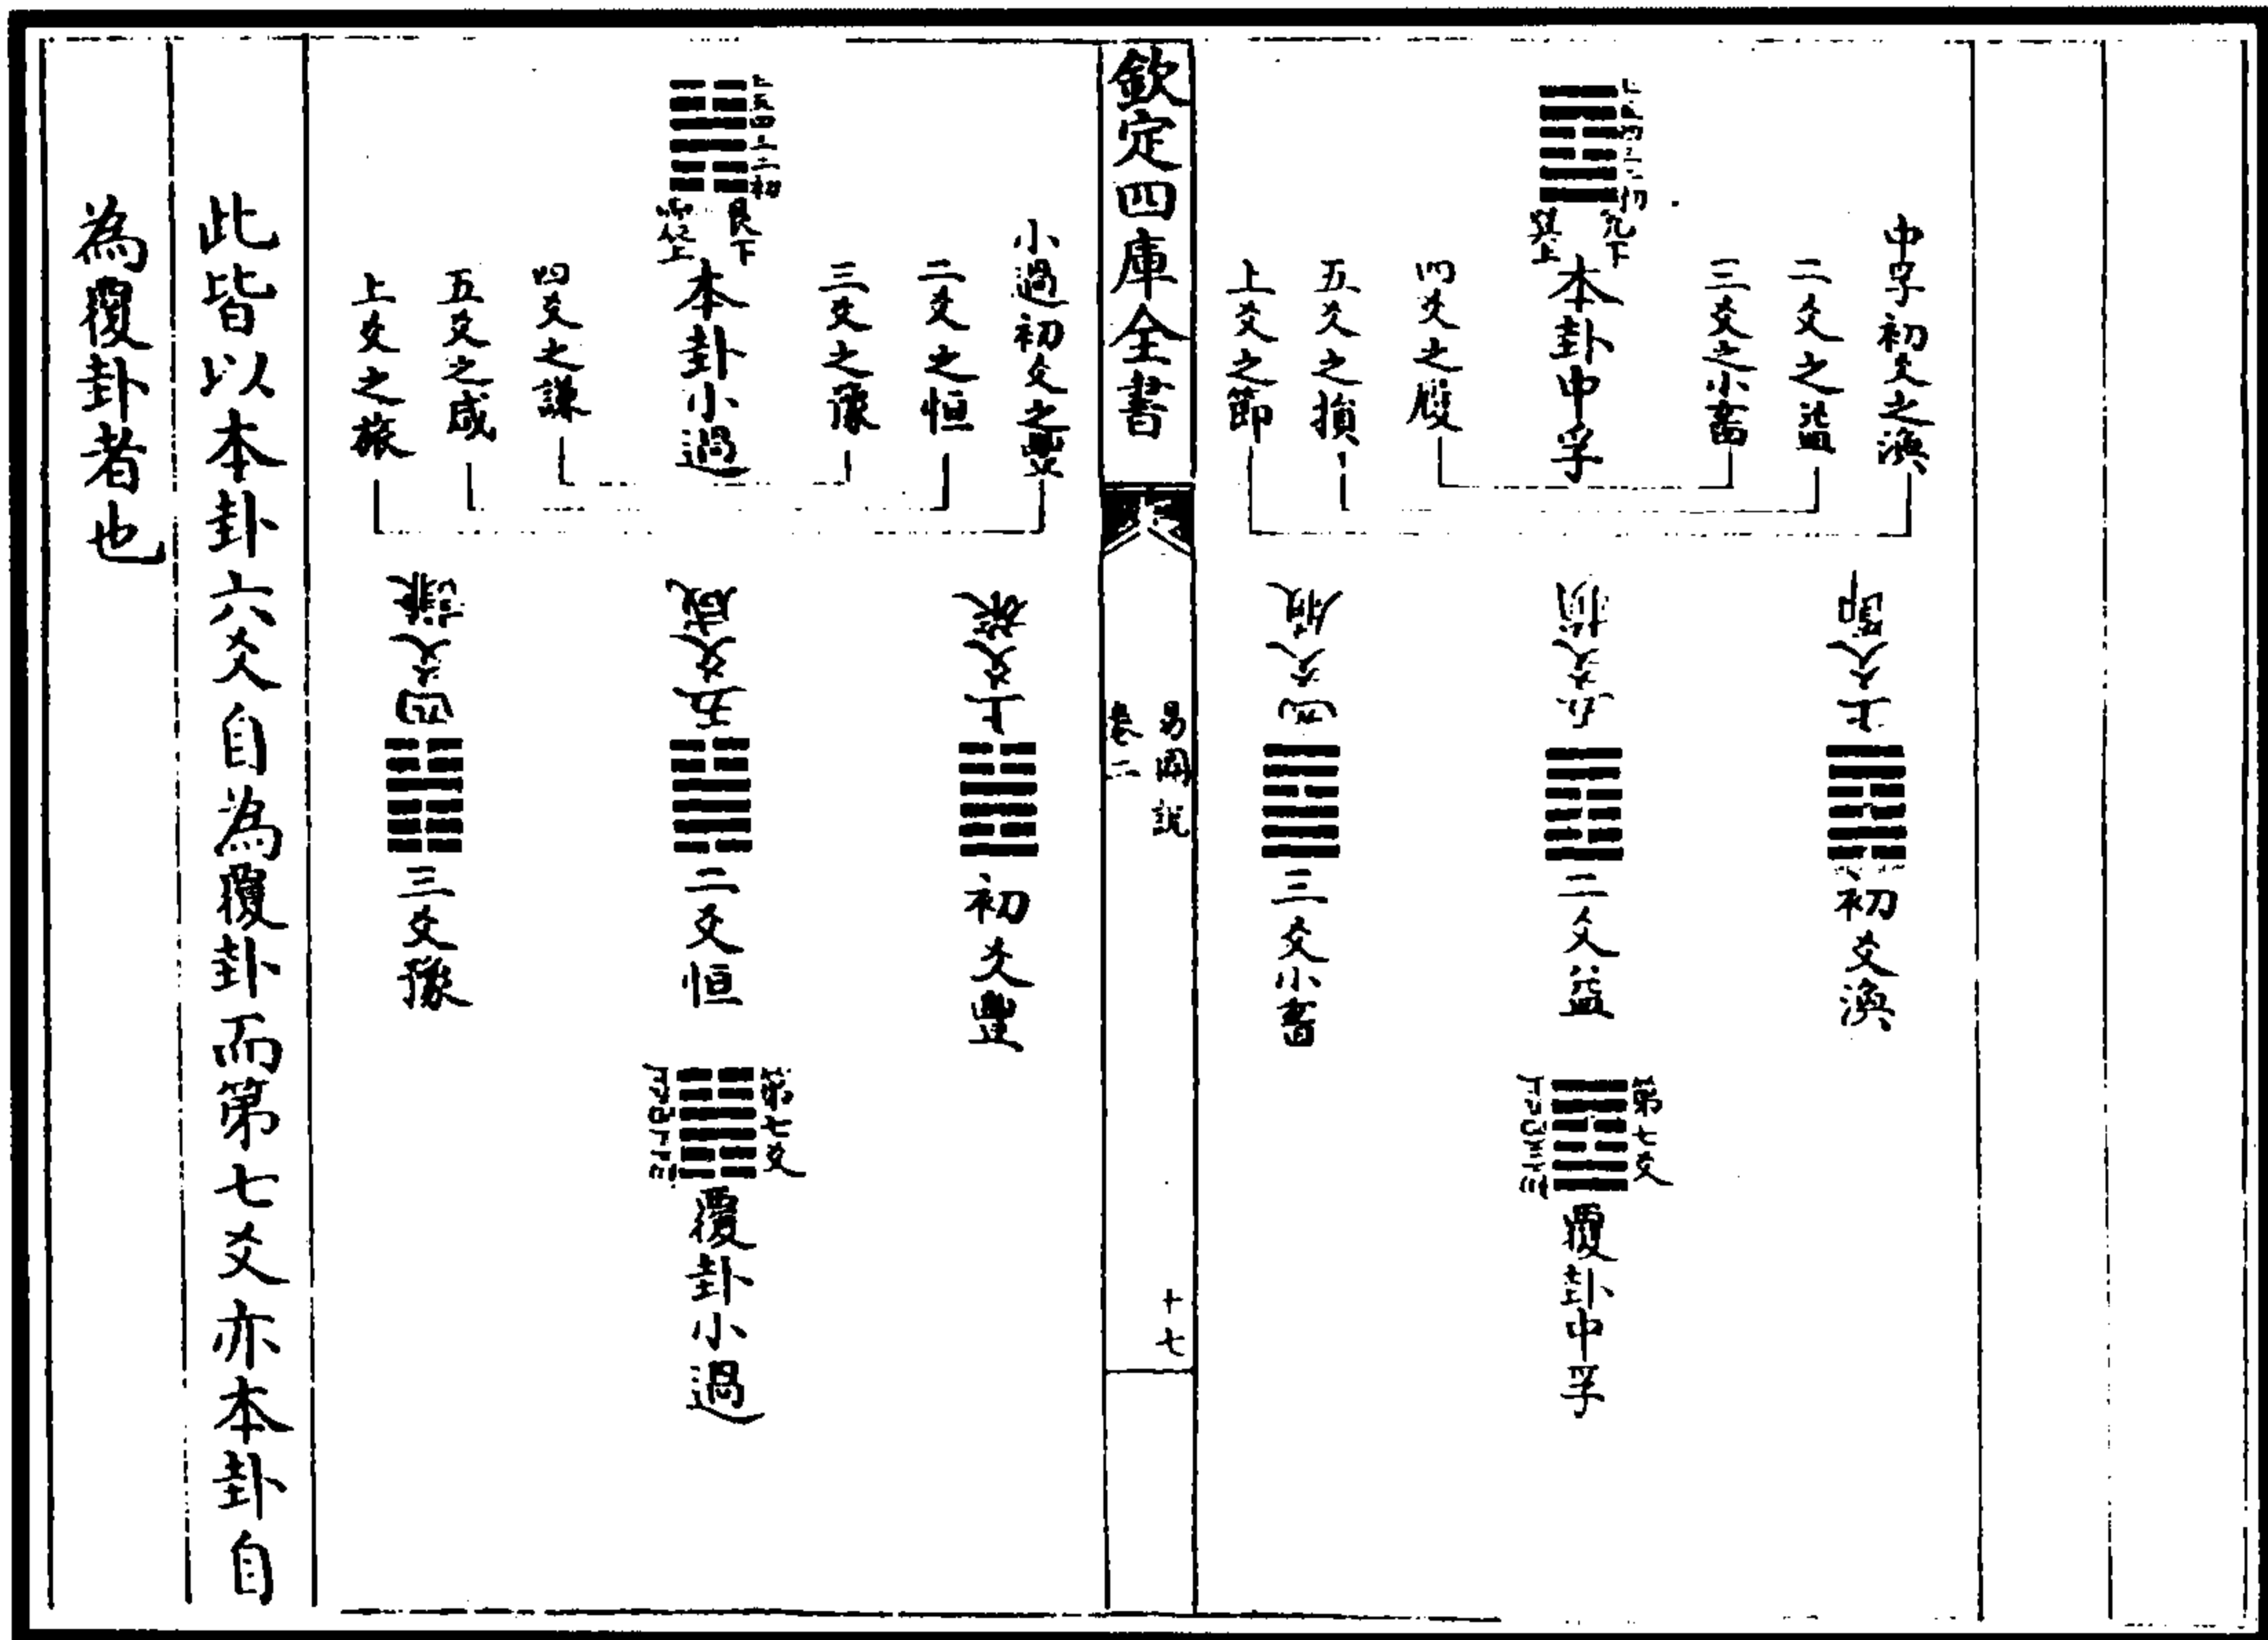 中孚初爻之渙
二爻之益
三爻之小畜
上五四三二初
兌下
巽上
本卦中孚
四爻之履
五爻之損
上爻之節
上爻節
初爻渙
五爻損
二爻益
四爻履
三爻小畜
第七爻
覆卦中孚
欽定四庫全書
易圖說
卷二
十七
小過初爻之豐
二爻之恒
三爻之豫
上五四三二初
艮下
震上
本卦小過
四爻之謙
五爻之咸
上爻之旅
上爻旅
初爻豐
五爻咸
二爻恒
四爻謙
三爻豫
第七爻
覆卦小過
此皆以本卦六爻自為覆卦而第七爻亦本卦自
為覆卦者也